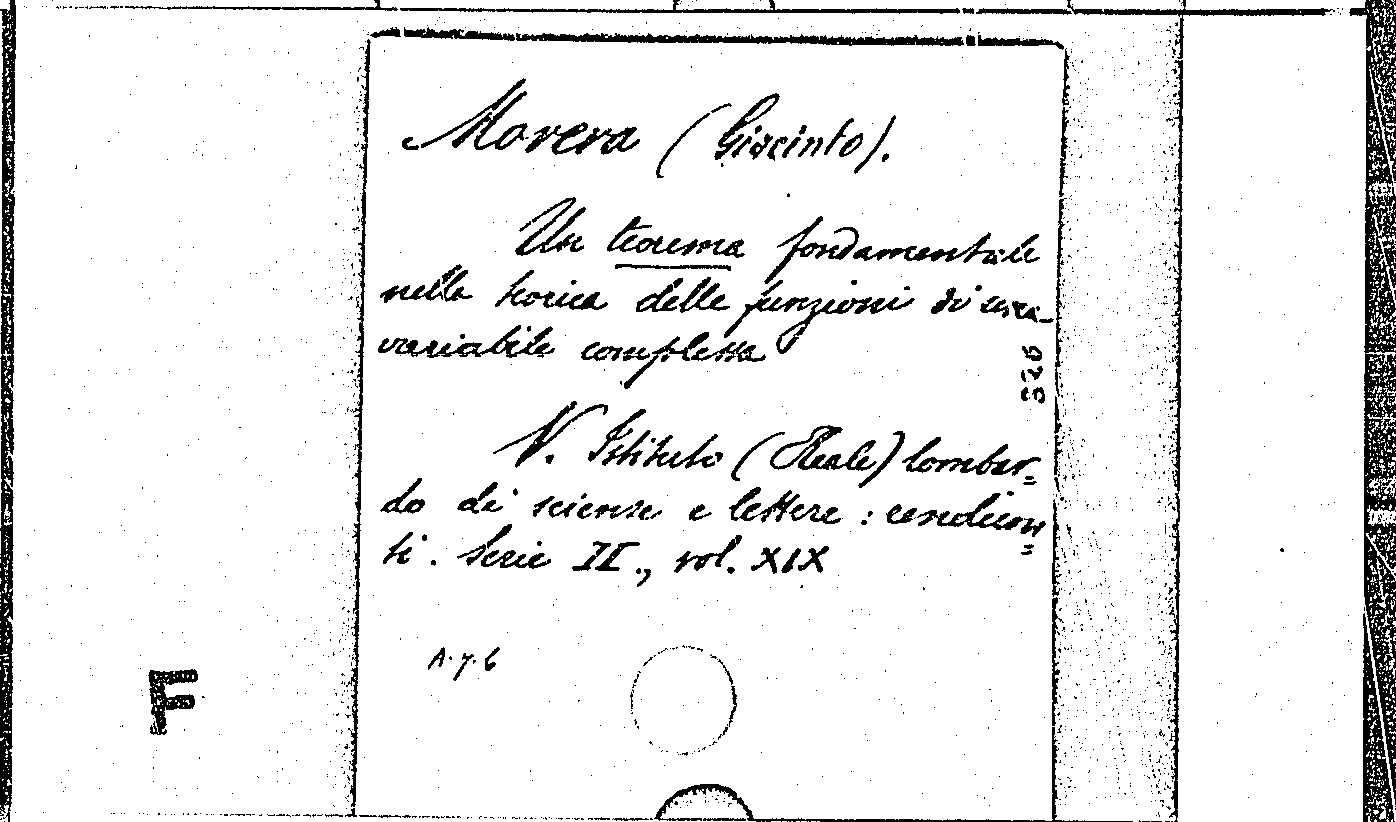 Morera (Giacinto).
Un teorema fondamentale
nella teorica delle funzioni di una
variabile complessa
526
V. Istituto (Reale) lombar=
do di scienze e lettere : rendicon=
ti. Serie II., vol. XIX
A.7.6
F